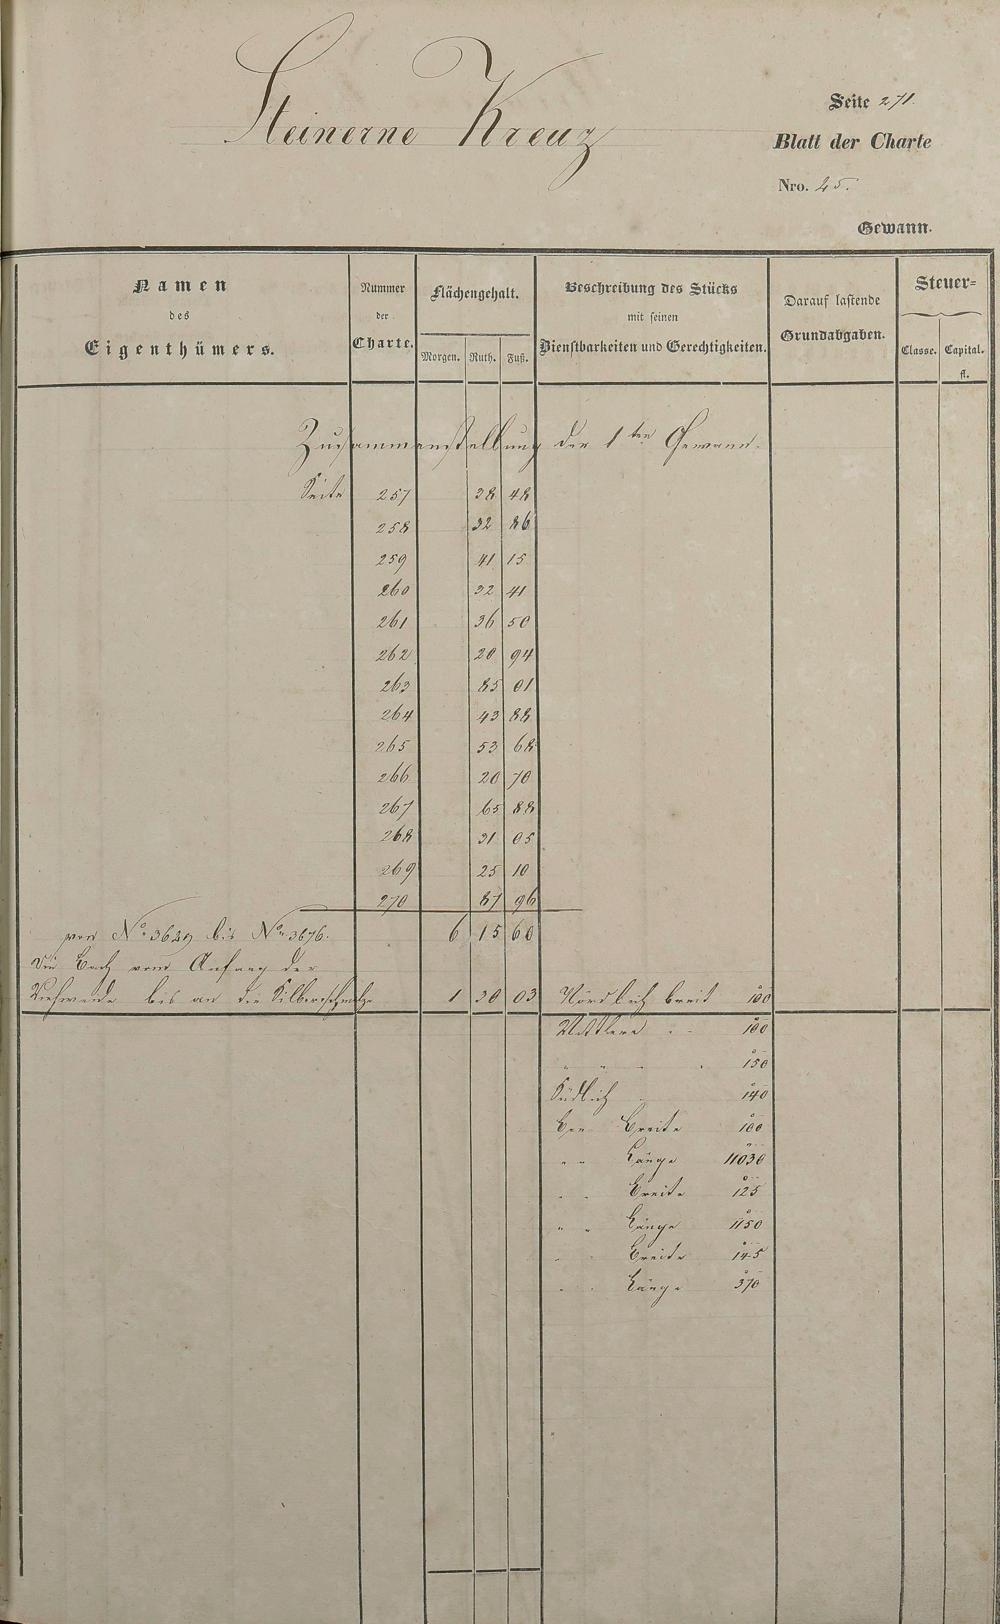 Steinerne Kreuz
Seite 271.
Blatt der Charte
Nro. 25.
Gewann.
Namen des Eigenthümers.
Nummer der Charte.
Flächengehalt.
Morgen. Ruth. Fuß.
Beschreibung des Stücks mit seinen Dienstbarkeiten und Gerechtigkeiten.
Darauf lastende Grundabgaben.
Steuer=
Classe. Capital. fl.
Zusammenstellung der 1ten Gewann.
Seite 257 38 48
258 32 86
259 41 15
260 32 41
261 36 50
262 20 94
263 85 01
264 43 88
265 53 68
266 20 70
267 65 88
268 31 05
269 25 10
270 87 96
von No 3649 bis No 3676. 6 15 60
Die Bach vom Anfang der
bis an die 1 30 03 Nördlich breit 100
Mittlere " " 100
" " " " 150
Südlich " 140
Breite 100
" " Länge 11030
" " Breite 125
" " Länge 1150
" " Breite 145
" " Länge 370